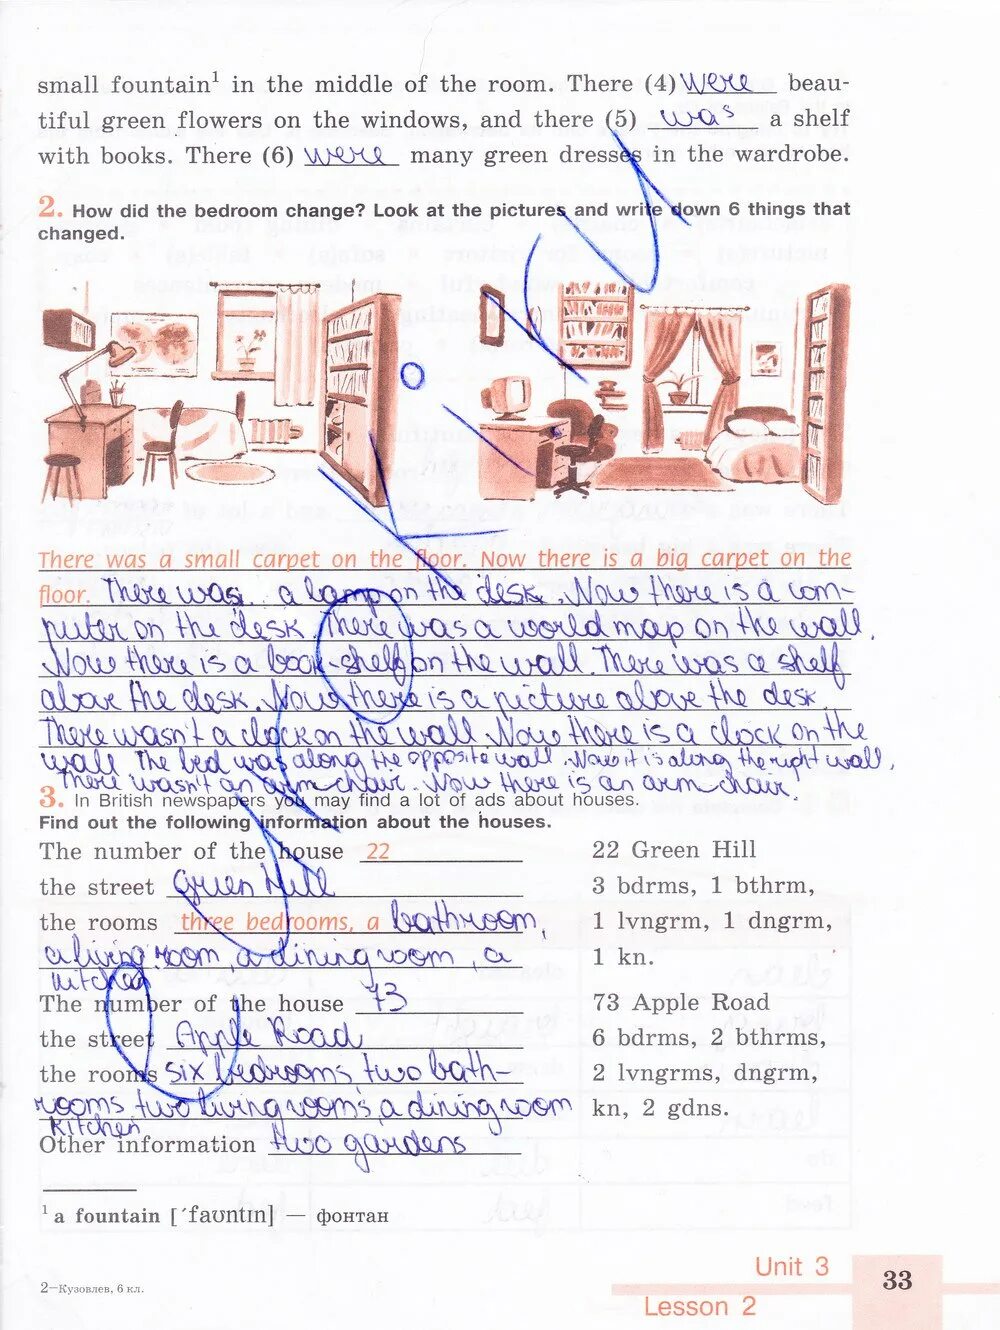 small fountain¹ in the middle of the room. There (4) were beau-
tiful green flowers on the windows, and there (5) was a shelf
with books. There (6) were many green dresses in the wardrobe.
2. How did the bedroom change? Look at the pictures and write down 6 things that
changed.
There was a small carpet on the floor. Now there is a big carpet on the
floor. There was a lamp on the desk. Now there is a com-
puter on the desk. There was a world map on the wall.
Now there is a book-shelf on the wall. There was a shelf
above the desk. Now there is a picture above the desk.
There wasn't a clock on the wall. Now there is a clock on the
wall. The bed was along the opposite wall. Now it is along the right wall.
There wasn't an arm-chair. Now there is an arm-chair.
3. In British newspapers you may find a lot of ads about houses.
Find out the following information about the houses.
The number of the house 22
the street Green Hill
the rooms three bedrooms, a bathroom,
a living room, a dining room, a
kitchen
22 Green Hill
3 bdrms, 1 bthrm,
1 lvngrm, 1 dngrm,
1 kn.
The number of the house 73
the street Apple Road
the rooms six bedrooms, two bath-
rooms two living rooms, a dining room
kitchen
Other information two gardens
73 Apple Road
6 bdrms, 2 bthrms,
2 lvngrms, dngrm,
kn, 2 gdns.
¹ a fountain [ˈfaʊntɪn] — фонтан
2—Кузовлев, 6 кл.
Unit 3
Lesson 2
33